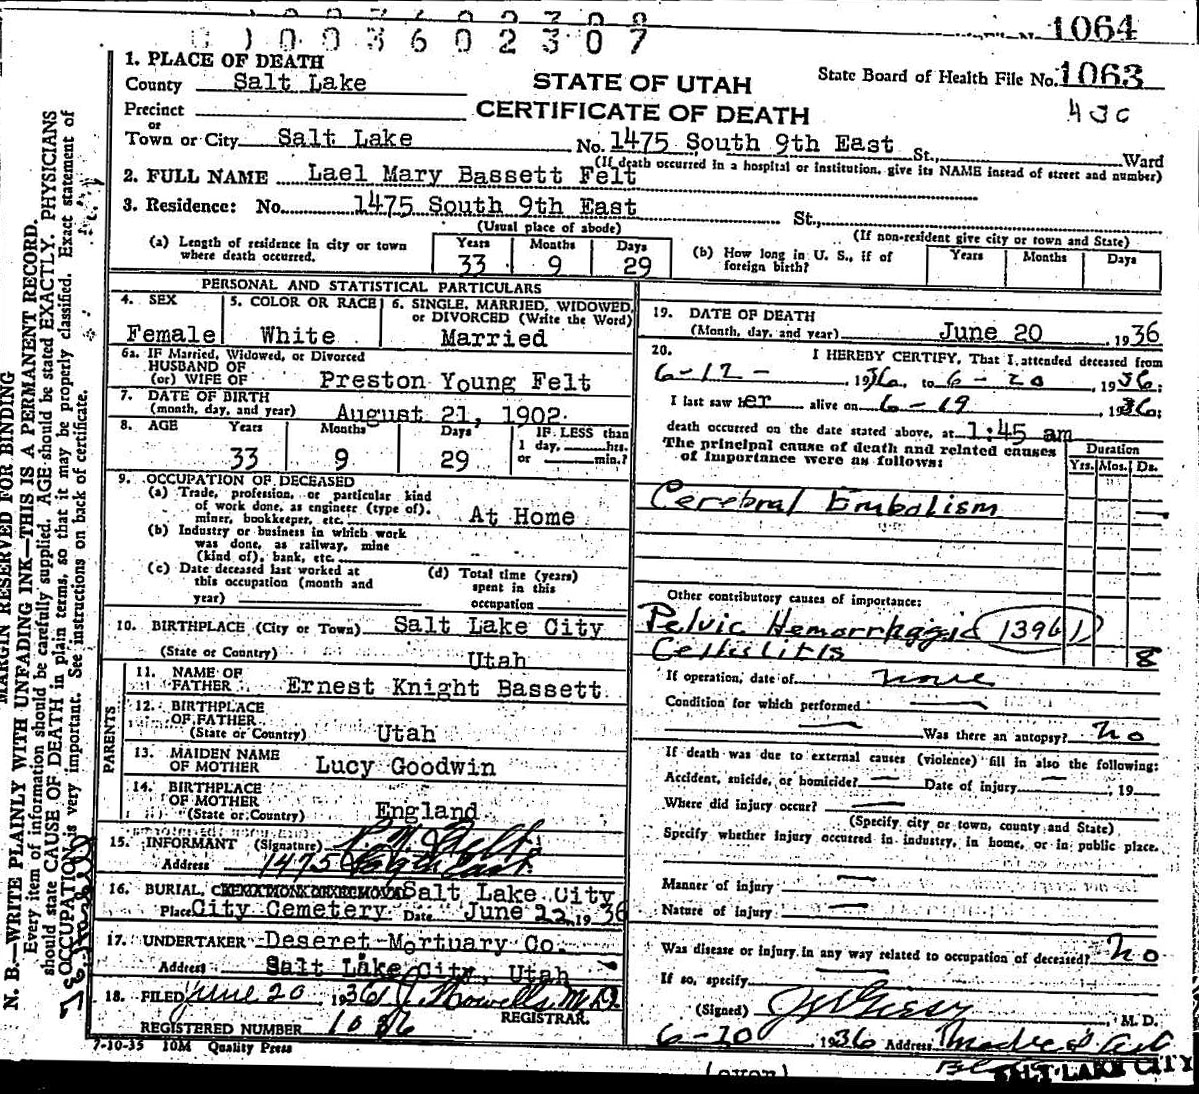 1064
10036 02307
1. PLACE OF DEATH
County Salt Lake
STATE OF UTAH
State Board of Health File No. 1063
Precinct
CERTIFICATE OF DEATH
430
or
Town or City Salt Lake No. 1475 South 9th East St., Ward
(If death occurred in a hospital or institution, give its NAME insead of street and number)
2. FULL NAME Lael Mary Bassett Felt
3. Residence: No. 1475 South 9th East St.,
(Usual place of abode)
(If non-resident give city or town and State)
(a) Length of residence in city or town where death occurred.
Years 33 Months 9 Days 29
(b) How long in U. S., if of foreign birth?
Years Months Days
PERSONAL AND STATISTICAL PARTICULARS
4. SEX Female
5. COLOR OR RACE White
6. SINGLE, MARRIED, WIDOWED, or DIVORCED (Write the Word) Married
6a. IF Married, Widowed, or Divorced
HUSBAND OF
(or) WIFE OF Preston Young Felt
7. DATE OF BIRTH
(month, day, and year) August 21, 1902
8. AGE Years 33 Months 9 Days 29
IF LESS than
1 day, hrs.
or min.?
9. OCCUPATION OF DECEASED
(a) Trade, profession, or particular kind
of work done, as engineer (type of).
miner, bookkeeper, etc. At Home
(b) Industry or business in which work
was done, as railway, mine
(kind of), bank, etc.
(c) Date deceased last worked at
this occupation (month and
year)
(d) Total time (years)
spent in this
occupation
10. BIRTHPLACE (City or Town) Salt Lake City
(State or Country) Utah
PARENTS
11. NAME OF
FATHER Ernest Knight Bassett
12. BIRTHPLACE
OF FATHER
(State or Country) Utah
13. MAIDEN NAME
OF MOTHER Lucy Goodwin
14. BIRTHPLACE
OF MOTHER
(State or Country) England
15. INFORMANT (Signature) P. Y. Felt
Address 1475 So 9th East
16. BURIAL, Salt Lake City
Place City Cemetery Date June 22, 1936
17. UNDERTAKER Deseret Mortuary Co.
Address Salt Lake City, Utah
18. FILED June 20 1936 M.D.
REGISTRAR.
REGISTERED NUMBER 1086
7-10-35 10M Quality Press
19. DATE OF DEATH
(Month, day, and year) June 20 , 1936
20. I HEREBY CERTIFY, That I attended deceased from
6-12- 1936, to 6-20 1936;
I last saw her alive on 6-19 , 1936;
death occurred on the date stated above, at 1:45 am
The principal cause of death and related causes
of importance were as follows:
Duration
Yrs. Mos. Ds.
Cerebral Embolism
Other contributory causes of importance:
Pelvic Hemorrhagic (139b1)
Cellulitis 8
If operation, date of none
Condition for which performed
Was there an autopsy? no
If death was due to external causes (violence) fill in also the following:
Accident, suicide, or homicide? Date of injury , 19
Where did injury occur?
(Specify city or town, county and State)
Specify whether injury occurred in industry, in home, or in public place.
Manner of injury
Nature of injury
Was disease or injury in any way related to occupation of deceased? no
If so, specify
(Signed) M. D.
6-20 1936 Address
SALT LAKE CITY
(over)
MARGIN RESERVED FOR BINDING
N. B.—WRITE PLAINLY WITH UNFADING INK—THIS IS A PERMANENT RECORD.
Every item of information should be carefully supplied. AGE should be stated EXACTLY. PHYSICIANS
should state CAUSE OF DEATH in plain terms, so that it may be properly classified. Exact statement of
OCCUPATION is very important. See instructions on back of certificate.